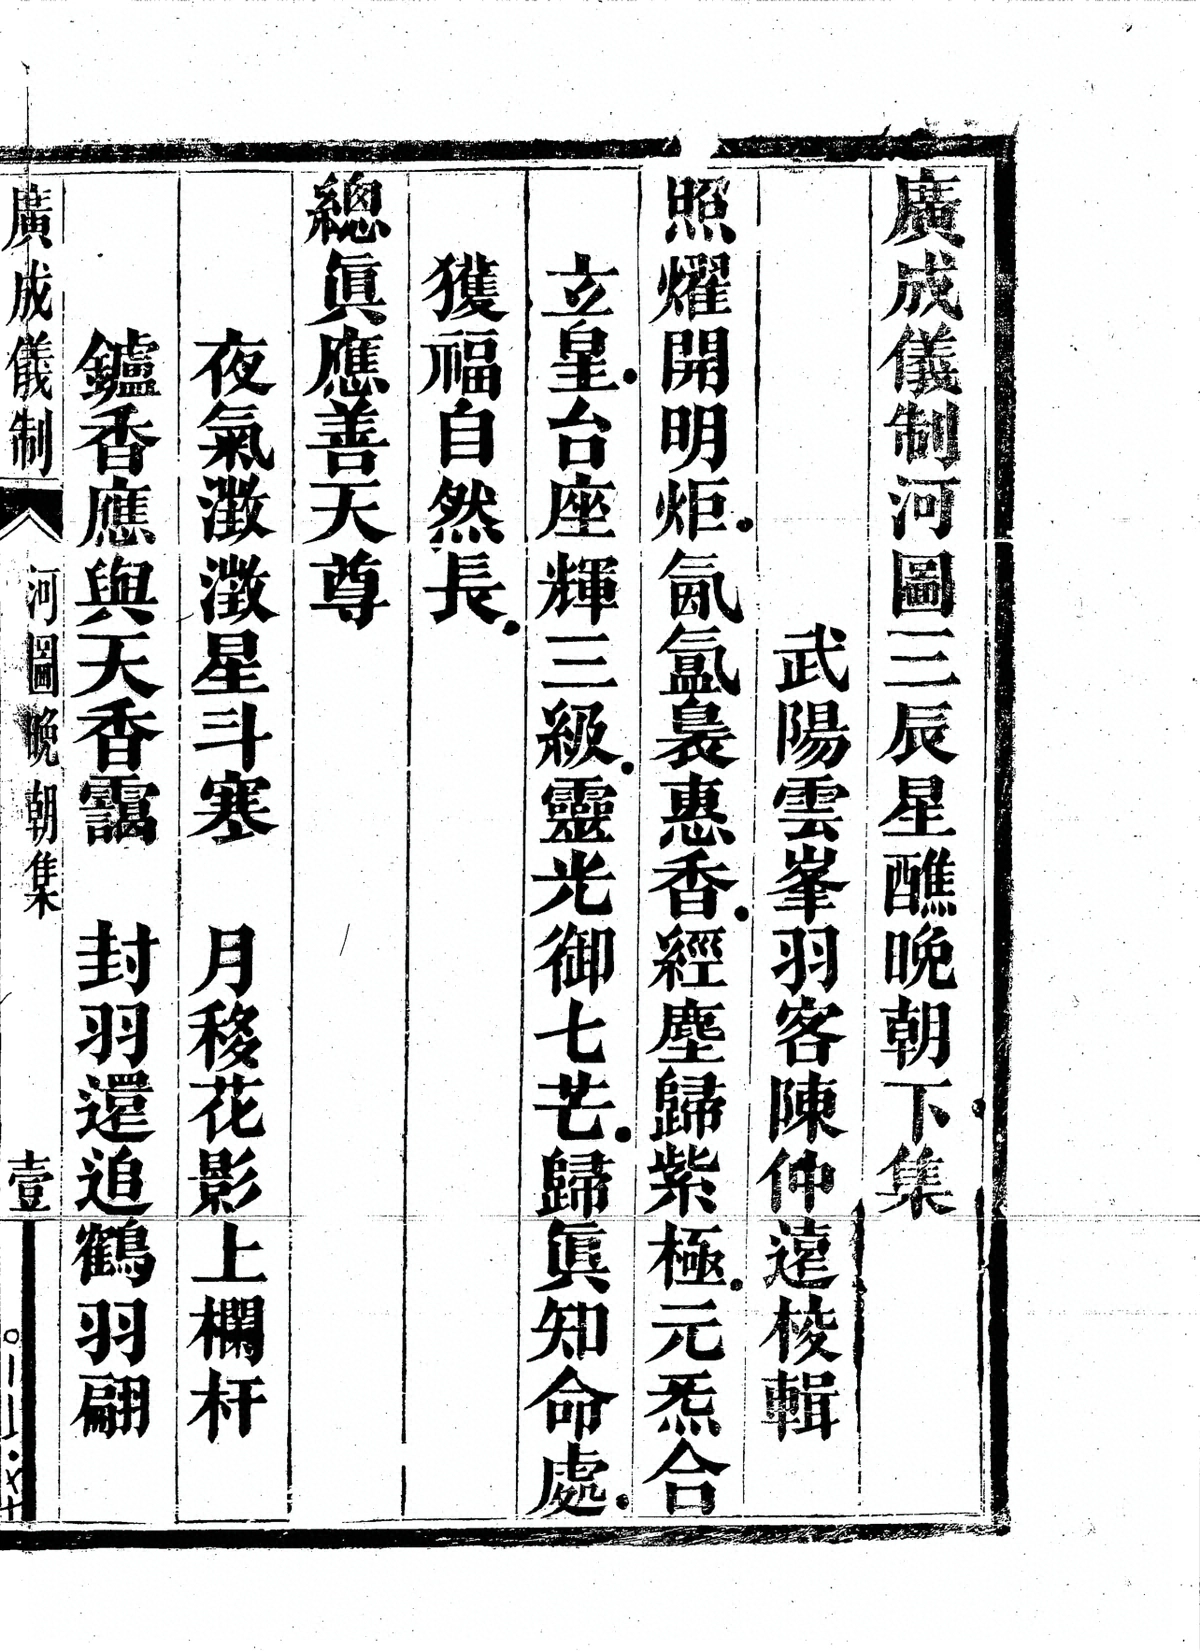 廣成儀制河圖三辰星醮晚朝下集
武陽雲峯羽客陳仲遠校輯
照燿開明炬氤氳裊惠香經塵歸紫極元炁合
立皇台座輝三級靈光御七芒歸眞知命處
獲福自然長
總眞應善天尊
夜氣澂澂星斗寒 月移花影上欄杆
鑪香應與天香靄 封羽還追鶴羽翩
廣成儀制 河圖晚朝集 壹